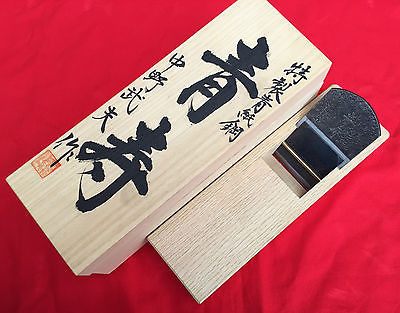 特製青紙鋼
青寿
中野武夫作